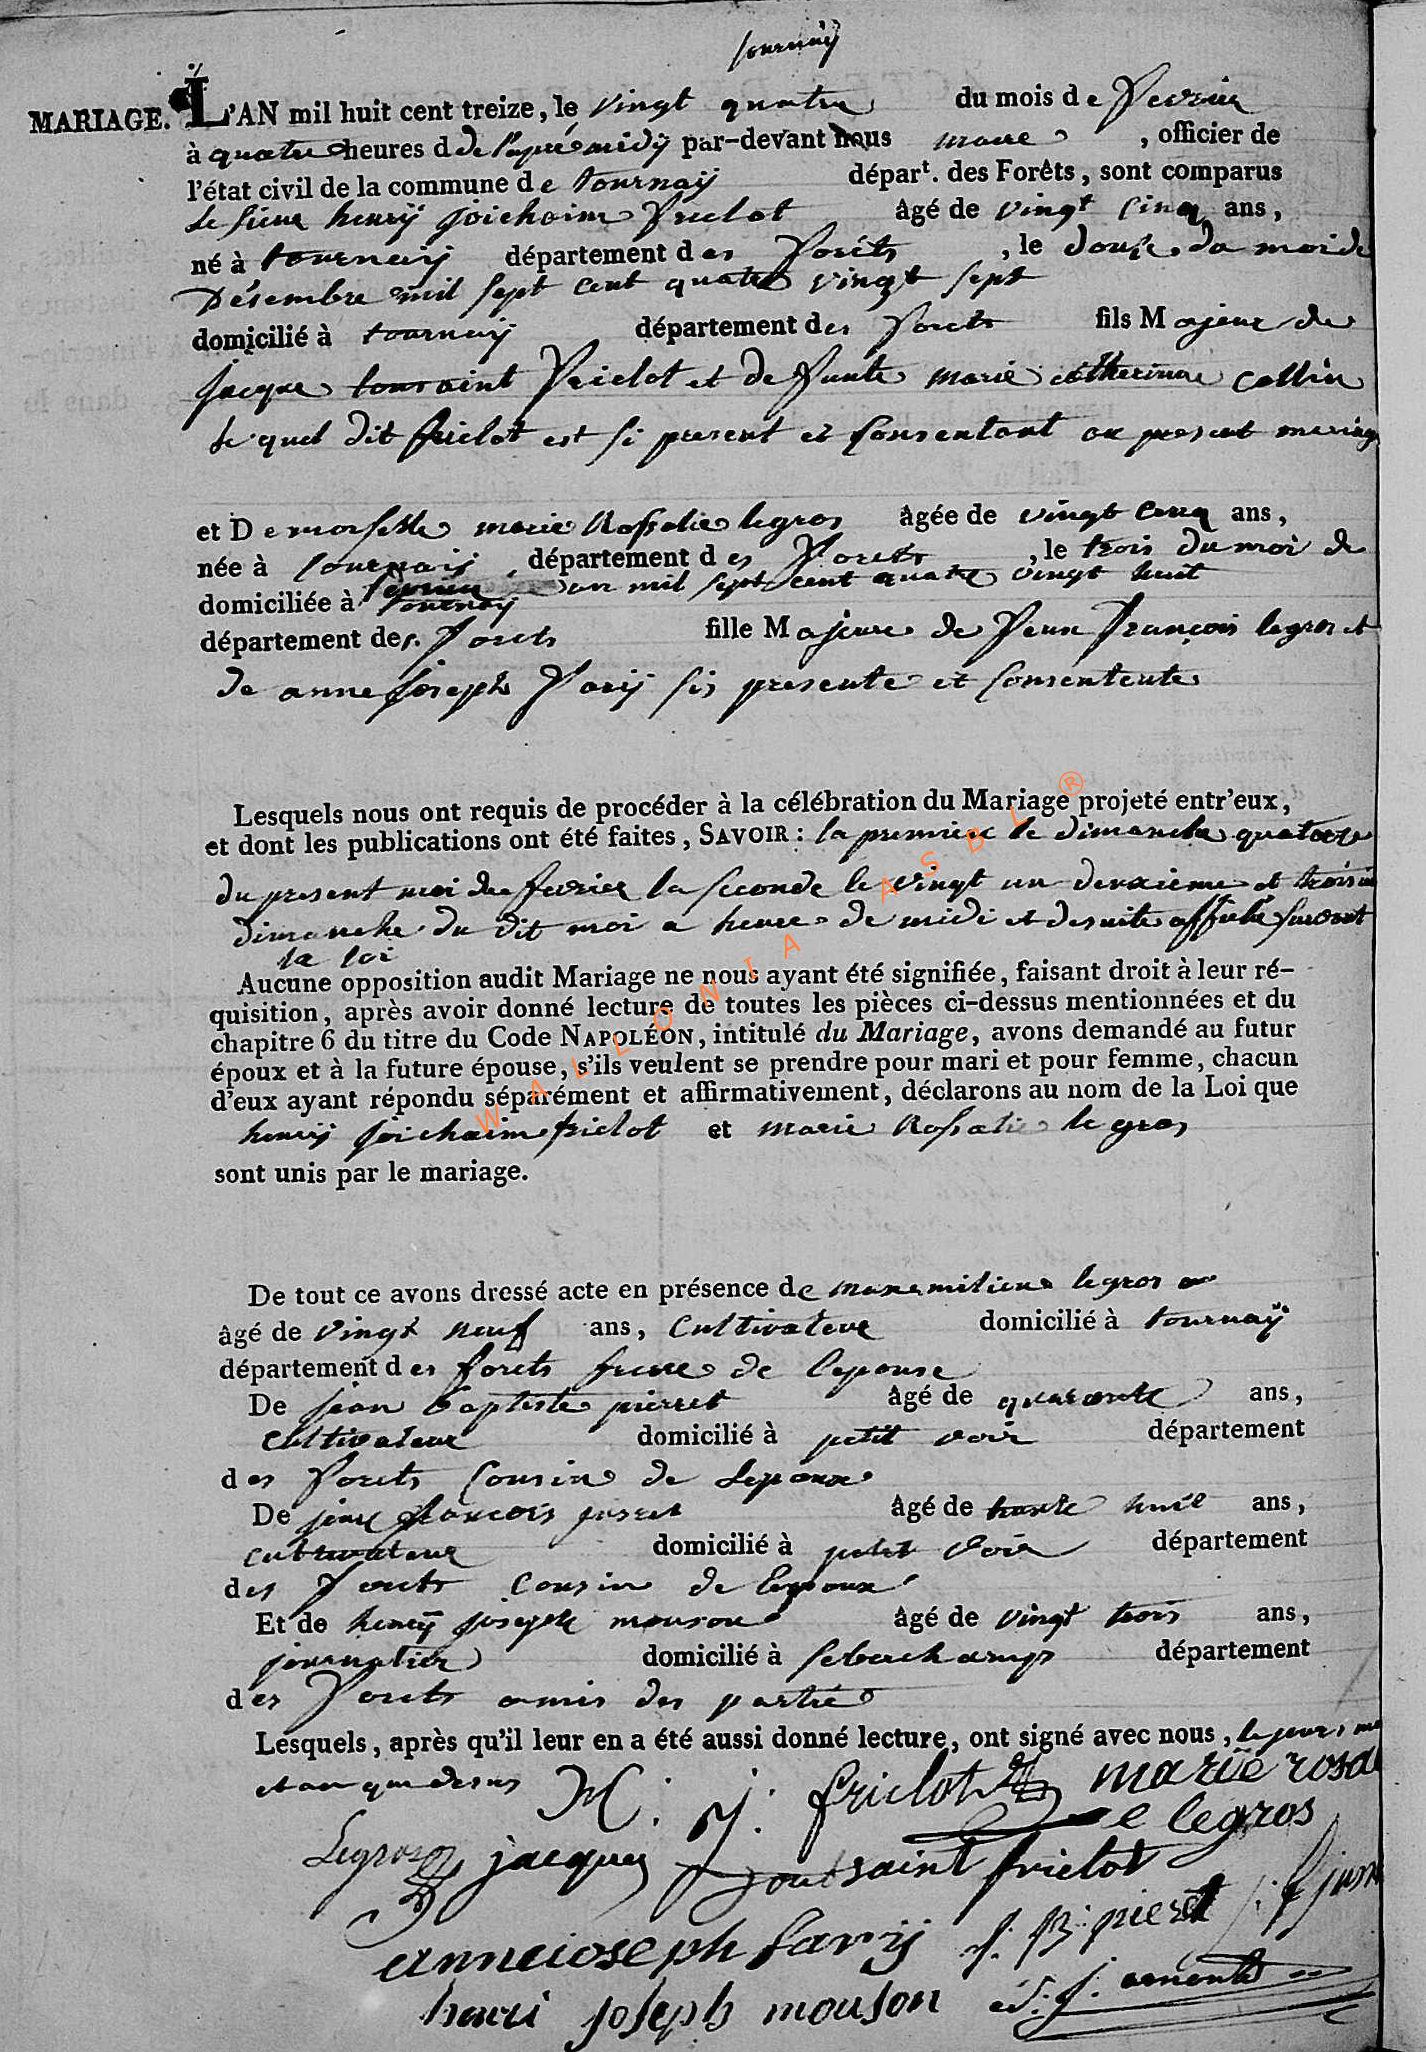 tournaÿ
MARIAGE. L'AN mil huit cent treize, le vingt quatre du mois de fevrier
à quatre heures d de l'apré midÿ par-devant nous maire, officier de
l'état civil de la commune de tournaÿ départ. des Forêts, sont comparus
le sieur henrÿ joichaim friclot âgé de vingt cinq ans,
né à tournaÿ département des Foréts, le douze du moi de
Désembre mil sept cent quatre vingt sept
domicilié à tournaÿ département des forets fils Majeur de
jacque toussaint friclot et de funte marie catherinne collin
le quel dit friclot est si present et consentant au present mariage
et Demoiselle marie Rossalie legros âgée de vingt cinq ans,
née à tournaÿ département des Forets, le trois du moi de
fevrier an mil sept cent quatre vingt huit
domiciliée à tournaÿ
département des. Forets fille Majeure de feux François legros et
de anne joseph Farÿ sis presente et consentente
Lesquels nous ont requis de procéder à la célébration du Mariage projeté entr'eux,
et dont les publications ont été faites, SAVOIR : la premiere le dimanche quatorze
du present moi de fevrier la seconde le vingt un deuxieme et troisie
dimanche du dit moi a heure de midi et desuite affiché suivant
la loi
Aucune opposition audit Mariage ne nous ayant été signifiée, faisant droit à leur ré-
quisition, après avoir donné lecture de toutes les pièces ci-dessus mentionnées et du
chapitre 6 du titre du Code NAPOLÉON, intitulé du Mariage, avons demandé au futur
époux et à la future épouse, s'ils veulent se prendre pour mari et pour femme, chacun
d'eux ayant répondu séparément et affirmativement, déclarons au nom de la Loi que
henrÿ joichaim friclot et marie Rossalie le gros
sont unis par le mariage.
De tout ce avons dressé acte en présence de maxemilien legros
âgé de vingt neuf ans, cultivateur domicilié à tournaÿ
département des forets frere de lepouse
De jean baptiste pierret âgé de quarante ans,
cultivateur domicilié à petit voir département
des Forets cousin de lepoux
De jean francois âgé de trente huit ans,
cultivateur domicilié à petit voir département
des Forets cousin de lepoux
Et de henrÿ joseph mouson âgé de vingt trois ans,
journalier domicilié à seberchamps département
des Forets amis des partie
Lesquels, après qu'il leur en a été aussi donné lecture, ont signé avec nous, le jour, moi
et an que desus H. j. friclot marie rosali
e legros
Legros jacques toussaint friclot
anneioseph farÿ j. B. pieret j. f
henri joseph mouson
WALLONIA ASBL ®